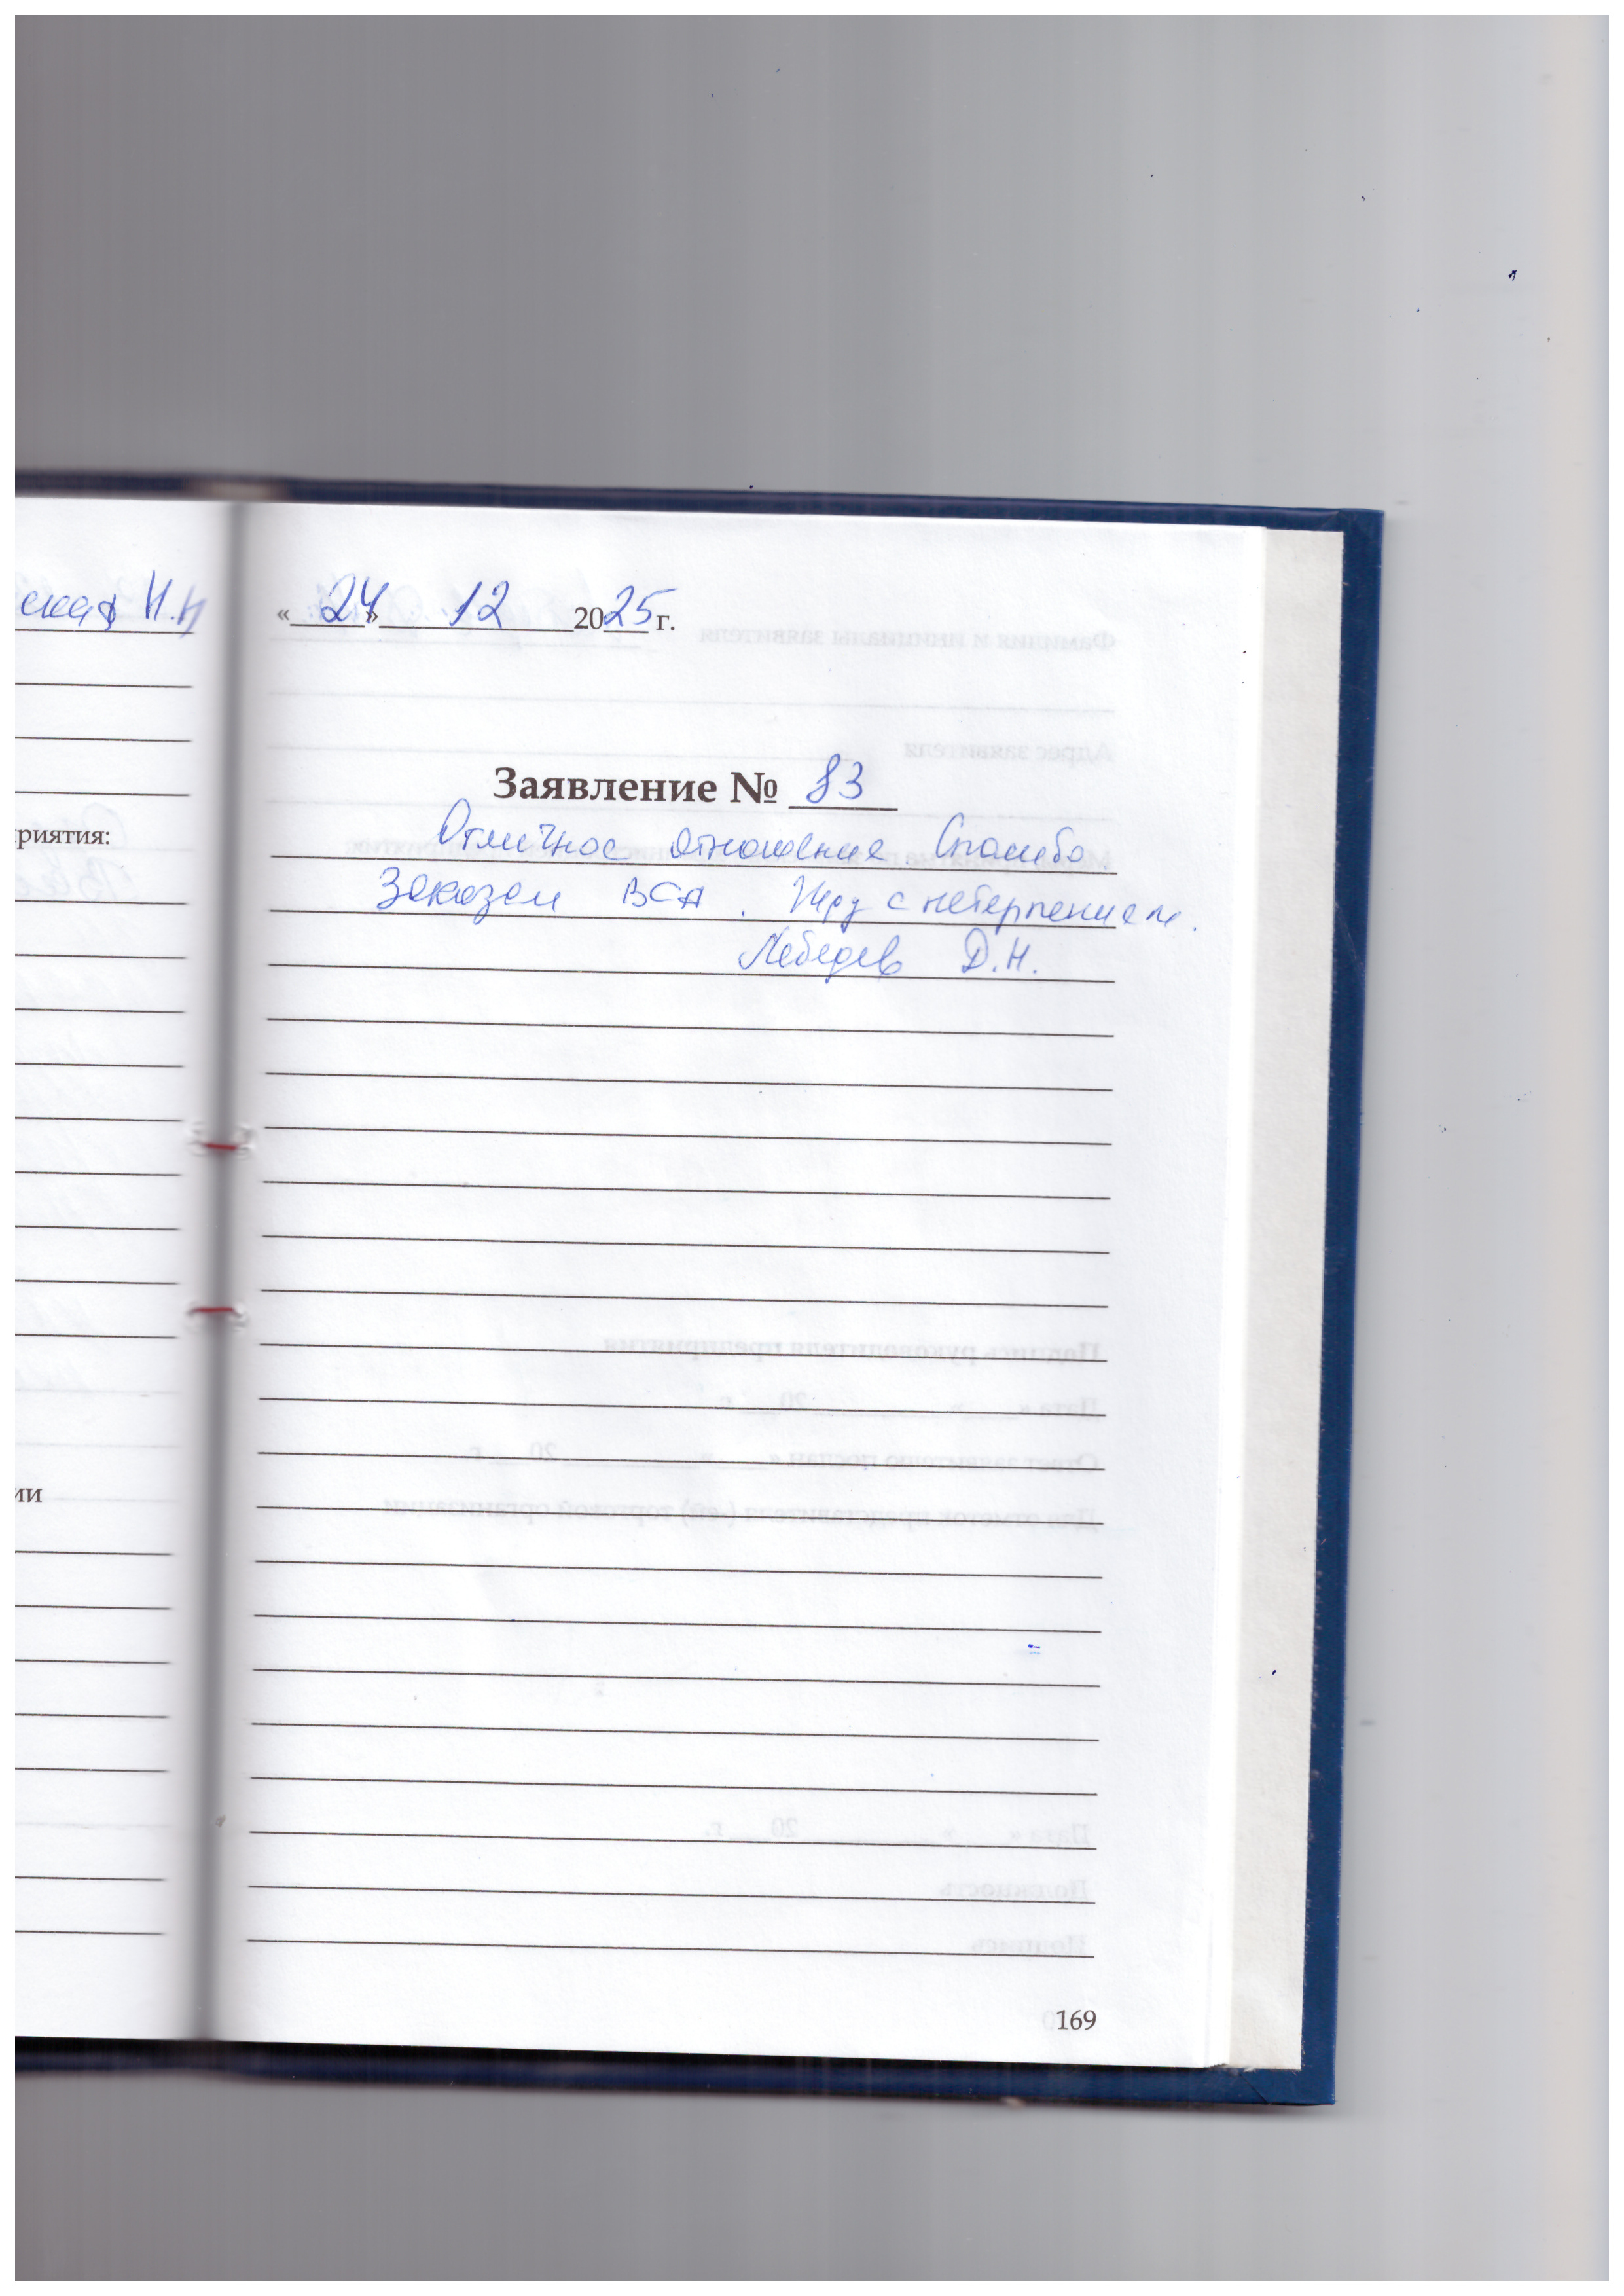 ская Н.Н
риятия:
ии
«24» 12 2025 г.
Заявление № 83
Отличное отношение Спасибо
Заказал ВСА. Жду с нетерпением.
Лебедев Д.Н.
169